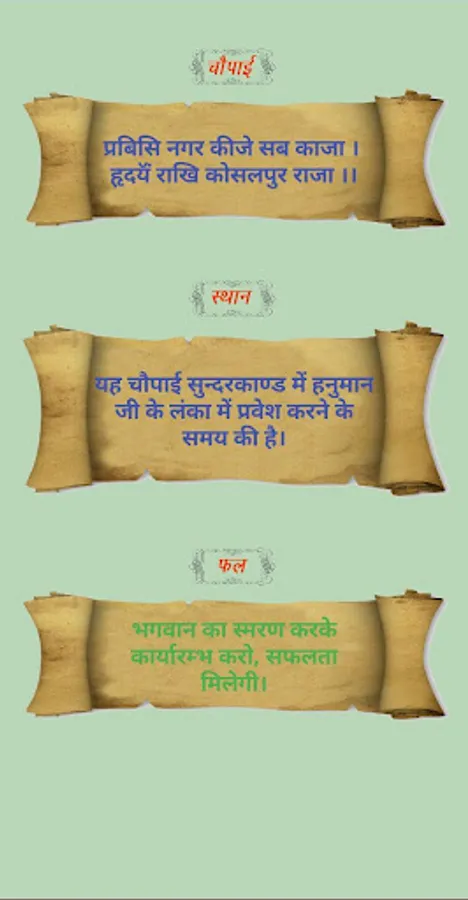 चौपाई
प्रबिसि नगर कीजे सब काजा ।
हृदयँ राखि कोसलपुर राजा ।।
स्थान
यह चौपाई सुन्दरकाण्ड में हनुमान
जी के लंका में प्रवेश करने के
समय की है।
फल
भगवान का स्मरण करके
कार्यारम्भ करो, सफलता
मिलेगी।